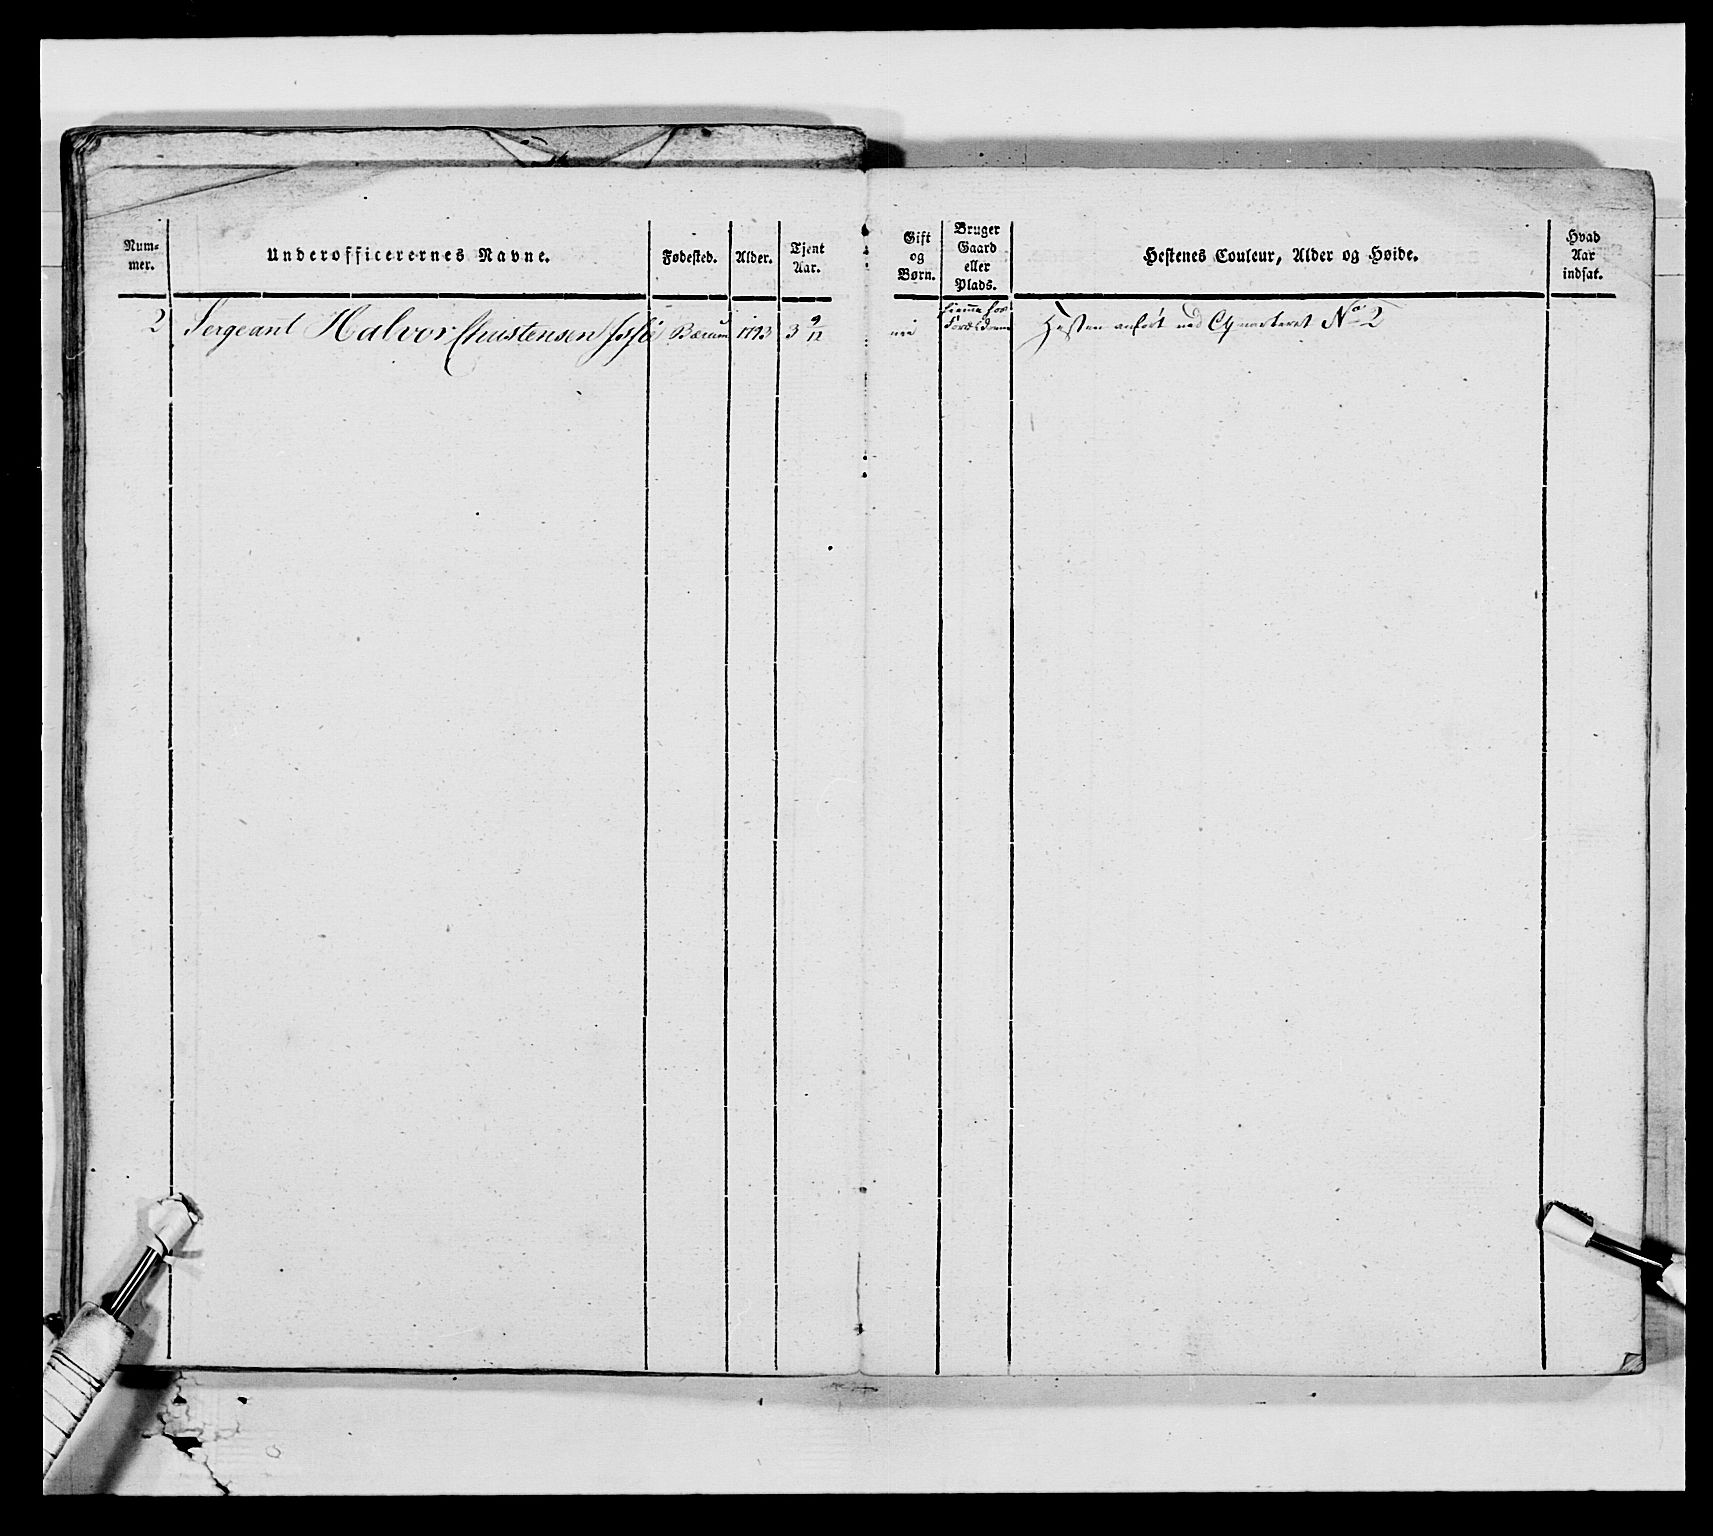 Num-
mer.
Underofficerernes Navne.
Fødested.
Alder.
Tjent
Aar.
Gift
og
Børn.
Bruger
Gaard
eller
Plads.
Hestenes Couleur, Alder og Høide.
Hvad
Aar
indsat.
2 Sergeant Halvor Christensen Bærum 1793 3 9/12
hiemme hos
nei Forældrene Hesten anført ved Qvarteret No 2